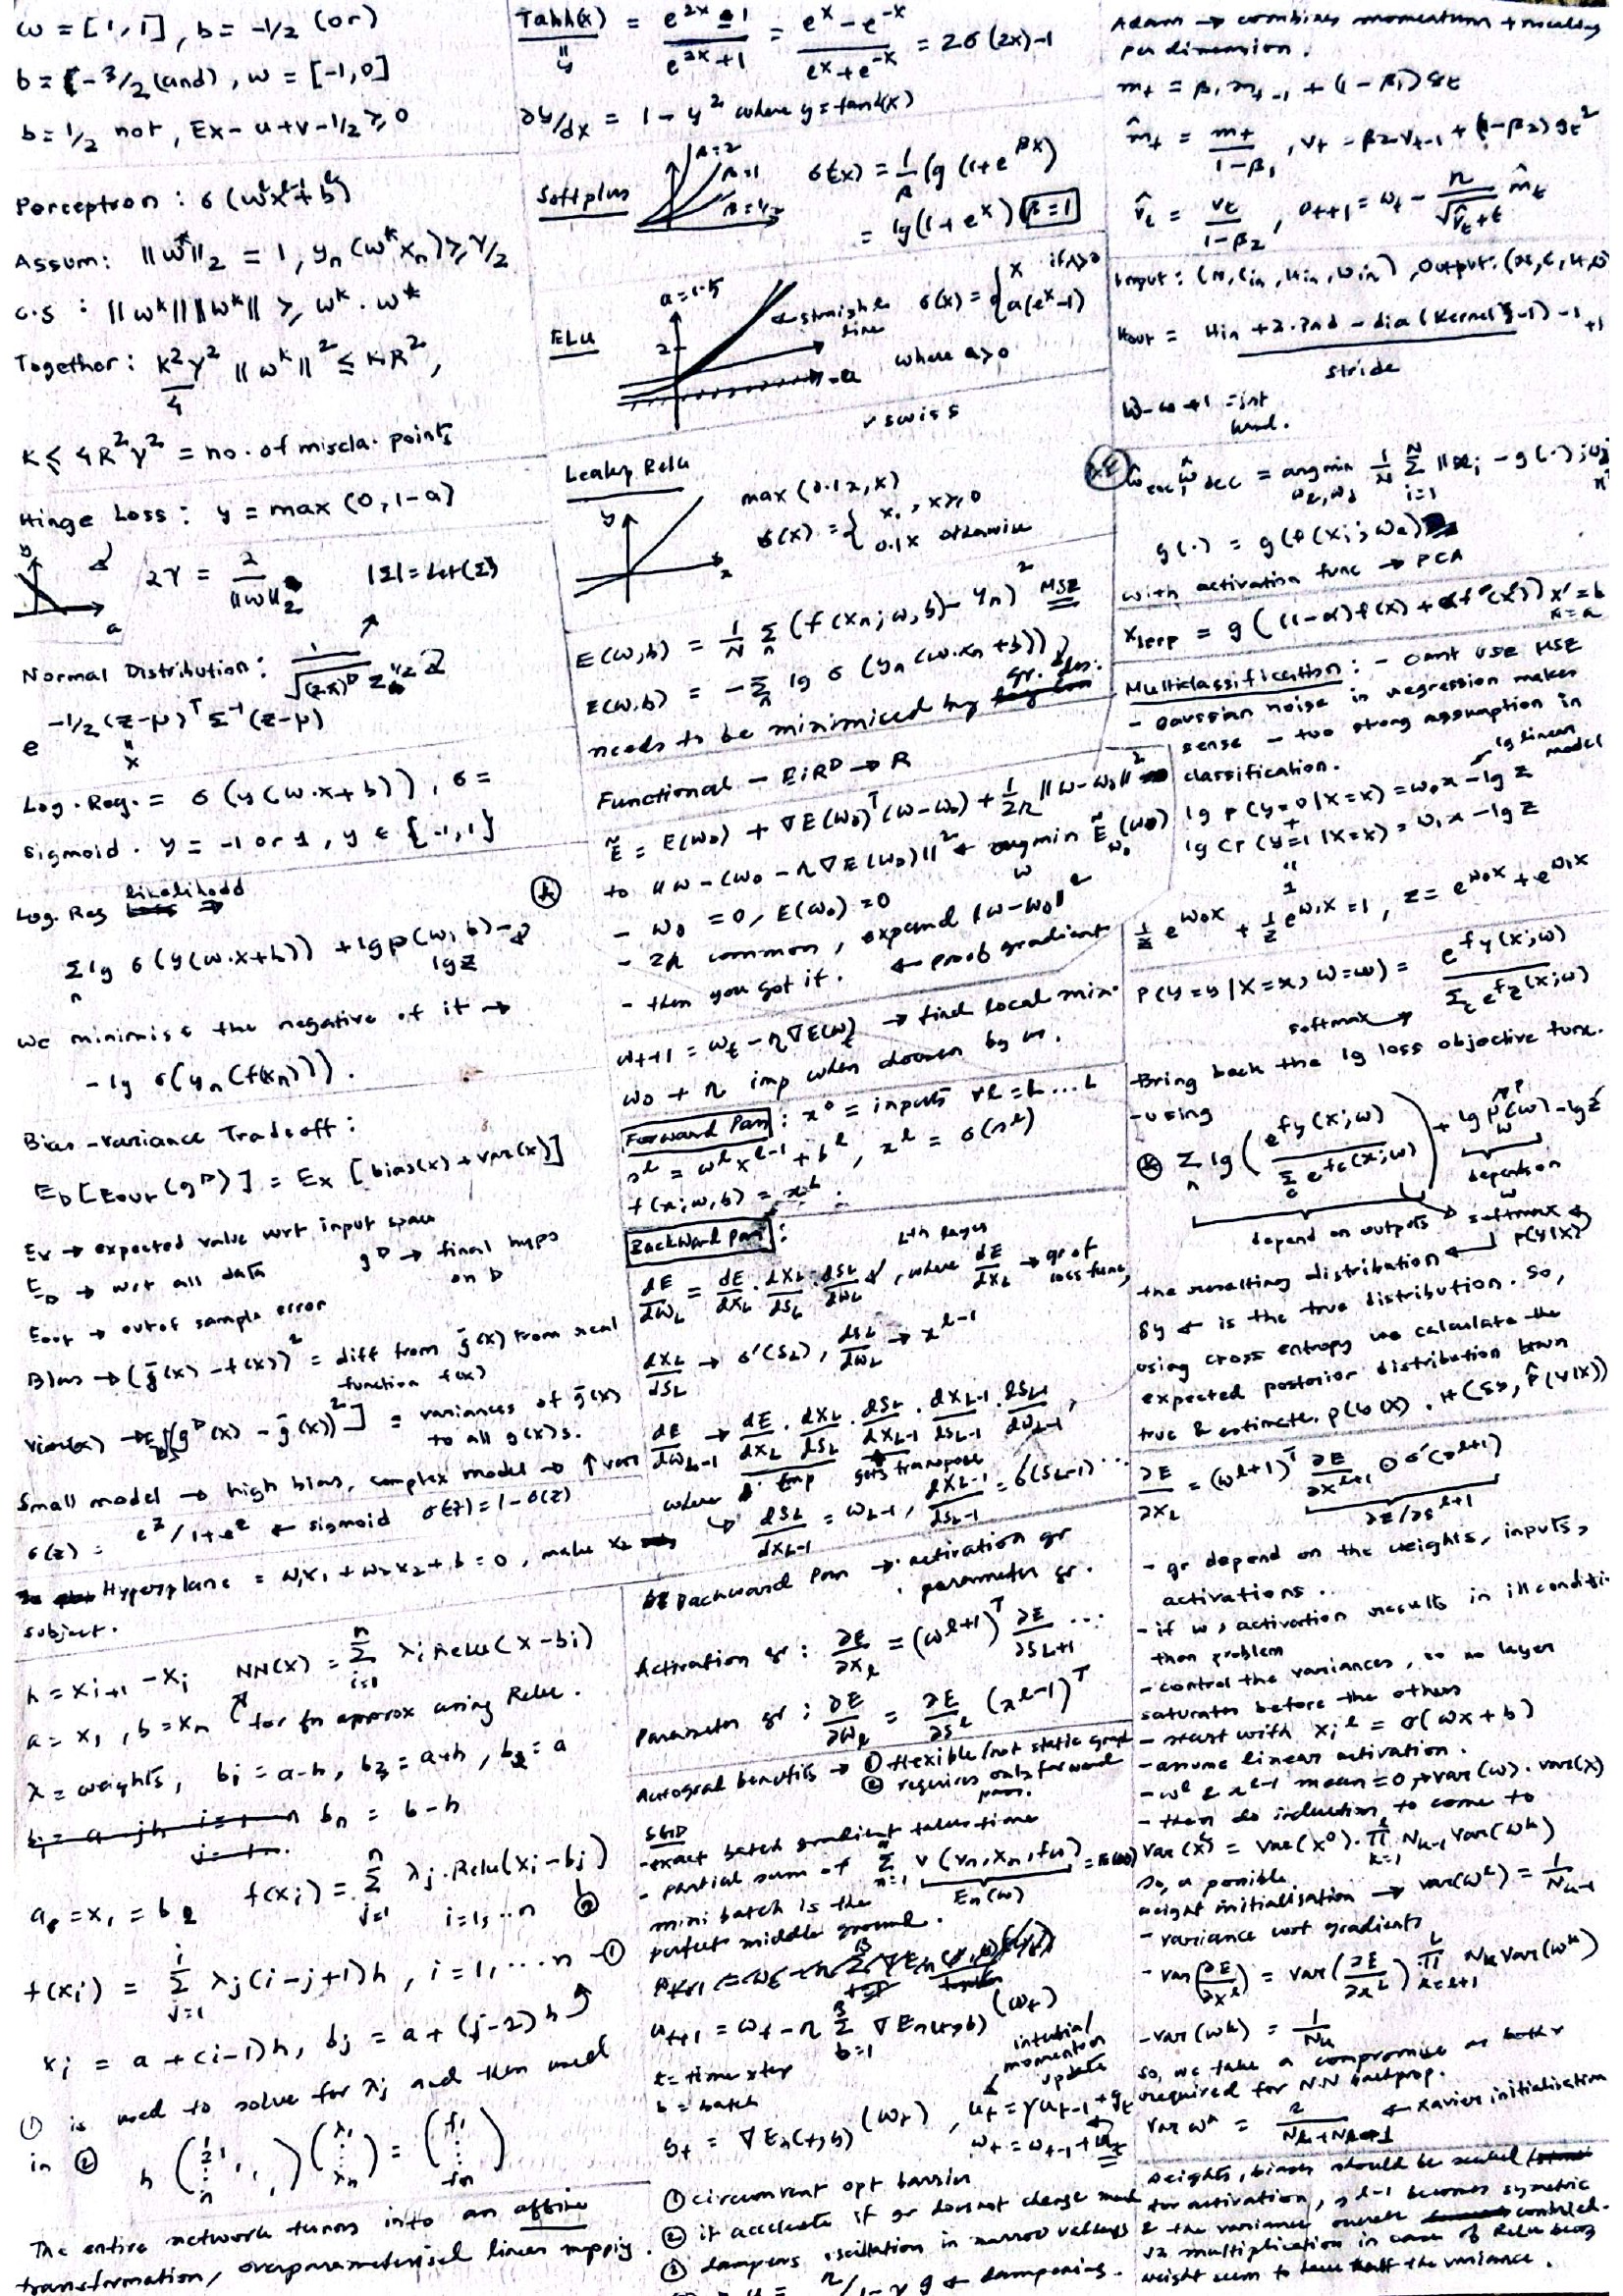 w = [1,1], b = -1/2 (or)
b = [-3/2 (and), w = [-1,0]
b = 1/2 not, Ex- u+v-1/2 ≥ 0
Perceptron : σ(wˡxˡ⁻¹+bˡ)
Assum: ||w*||₂ = 1, yₙ(w*xₙ) ≥ γ/2
C.S : ||wᵏ|| ||wᵏ|| ≥ wᵏ. w*
Together: k²γ²/4 ||wᵏ||² ≤ kR²,
K ≤ 4R²γ² = no. of miscla. points
Hinge Loss : y = max(0, 1-a)
y
a
2γ = 2/||w||₂
|Σ| = det(Σ)
Normal Distribution : 1/√(2π)ᴰ Σ^1/2
e^-1/2 (z-μ)ᵀ Σ⁻¹ (z-μ)
x
Log. Reg. = σ(y(w.x+b)), σ =
sigmoid. y = -1 or 1, y ∈ {-1,1}
Log. Reg likelihood →
Σₙ lg σ(y(w.x+b)) + lg p(w,b) - lg z
we minimise the negative of it →
- lg σ(yₙ(f(xₙ))).
Bias-variance Tradeoff :
E_D[E_out(gᴰ)] = Eₓ [bias(x) + var(x)]
Ex → expected value wrt input space
E_D → wrt all data gᴰ → final hypo on D
E_out → out of sample error
Bias → (ḡ(x) - f(x))² = diff from ḡ(x) from real function f(x)
var(x) → E_D[(gᴰ(x) - ḡ(x))²] = variances of ḡ(x) to all g(x)s.
Small model → high bias, complex model → ↑ var
σ(z) = eᶻ/1+eᶻ ← sigmoid σ(z) = 1-σ(z)
Hyperplane = w₁x₁ + w₂x₂ + b = 0, make x₂
subject.
h = xᵢ₊₁ - xᵢ NN(x) = Σⁿᵢ₌₁ λᵢ Relu(x-bᵢ)
a = x₁, b = xₙ for fn approx using Relu.
λ = weights, b₁ = a-h, b₃ = a+h, b₂ = a
bₙ = b-h
a = x₁ = b₂ f(xᵢ) = Σⁿⱼ₌₁ λⱼ.Relu(xᵢ-bⱼ)
i = 1,..n ②
f(xᵢ) = Σⁱⱼ₌₁ λⱼ(i-j+1)h, i = 1,...n -①
xᵢ = a+(i-1)h, bⱼ = a+(j-2)h
① is used to solve for λⱼ and then used
in ② h (1 2 1 ⋮ n) (λ₁ ⋮ λₙ) = (f₁ ⋮ fₙ)
The entire network turns into an affine
transformation, overparameterised linear mapping.
Tanh(x) = e²ˣ-1/e²ˣ+1 = eˣ-e⁻ˣ/eˣ+e⁻ˣ = 2σ(2x)-1
y
∂y/dx = 1-y² where y = tanh(x)
Softplus
β=2
β=1
β=1/2
σ(x) = 1/β lg(1+e^βx)
= lg(1+eˣ) β=1
ELU
a=1.5
2
← straight line
-a
σ(x) = { x if x>0
a(eˣ-1)
where a>0
Leaky Relu
y
x
max(0.1x, x)
σ(x) = { x, x ≥ 0
0.1x otherwise
E(w,b) = 1/N Σₙ (f(xₙ;w,b) - yₙ)² MSE
E(w,b) = -Σₙ lg σ(yₙ(w.xₙ+b))
needs to be minimised by gr. des.
Functional - E:Rᴰ → R
Ẽ = E(w₀) + ∇E(w₀)ᵀ(w-w₀) + 1/2η ||w-w₀||²
to ||w-(w₀-η∇E(w₀)||² ← argmin Ẽ(w₀)
- w₀ = 0, E(w₀) = 0
- 2η common, expand |w-w₀|²
- then you got it. ← proof gradient
wₜ₊₁ = wₜ - η∇E(w)ₜ → find local min.
w₀ + η imp when chosen by us.
Forward Pass : x⁰ = inputs ∀l = 1...L
sˡ = wˡxˡ⁻¹ + bˡ, xˡ = σ(sˡ)
f(x;w,b) = xᴸ.
Backward pass :
Lth layer
dE/dw_L = dE/dx_L . dx_L/ds_L . ds_L/dw_L, where dE/dx_L → gr of loss func,
dx_L/ds_L → σ'(s_L), ds_L/dw_L → xˡ⁻¹
dE/dw_L-1 → dE/dx_L . dx_L/ds_L . ds_L/dx_L-1 . dx_L-1/ds_L-1 . ds_L-1/dw_L-1,
tmp gets transpose
where ds_L/dx_L-1 = w_L-1, dx_L-1/ds_L-1 = σ(s_L-1)...
Backward Pass → activation gr
parameter gr.
Activation gr : ∂E/∂x_l = (wˡ⁺¹)ᵀ ∂E/∂s_L+1 ...
Parameter gr : ∂E/∂w_l = ∂E/∂sˡ (xˡ⁻¹)ᵀ
Autograd benefits → ① flexible/not static graph
② requires only forward pass.
SGD
- exact batch gradient takes time
- partial sum of Σⁿₙ₌₁ v(yₙ,xₙ,f(w)) = E(w)
Eₙ(w)
mini batch is the
perfect middle ground.
wₜ₊₁ = wₜ - η Σᴮ_b=1 ∇E n(t,b) (wₜ)
t = time step
b = batch
gₜ = ∇E n(t,b) (wₜ), uₜ = γuₜ₋₁ + gₜ
momentum update
wₜ = wₜ₋₁ + uₜ
① circumvent opt barrier
② it accelerate if gr does not change much
③ dampens oscillation in narrow valleys
Adam → combines momentum +
per dimension.
mₜ = β₁mₜ₋₁ + (1-β₁)gₜ
m̂ₜ = mₜ/1-β₁, vₜ = β₂vₜ₋₁ + (1-β₂)gₜ²
v̂ₜ = vₜ/1-β₂, wₜ₊₁ = wₜ - η/√v̂ₜ+ε m̂ₜ
Input : (N, Cin, Hin, Win), Output: (N, C, H, W)
Hout = Hin + 2.Pad - dia(Kernel-1) - 1 / stride +1
W-w+1 = int
AE ŵenc, ŵdec = argmin 1/N Σᴺᵢ₌₁ ||xᵢ - g(.);
g(.) = g(f(xᵢ;wₑ)
with activation func → PCA
x_lerp = g((1-α)f(x) + αf(x')) x'=b
x=a
Multiclassification : - cant use MSE
- Gaussian noise in regression makes
sense - too strong assumption in
classification.
lg linear model
lg p(y=0|X=x) = w₀x - lg z
lg Pr(y=1|X=x) = w₁x - lg z
1
1/z e^w₀x + 1/z e^w₁x = 1, z = e^w₀x + e^w₁x
P(Y=y|X=x, W=w) = e^fy(x;w) / Σ e^fz(x;w)
softmax
Bring back the lg loss objective func.
- using
Σₙ lg (e^fy(x;w) / Σ_c e^fc(x;w)) + lg p(w) - lg z
depends on w
depend on outputs softmax
p(y|x)
the resulting distribution
δy ← is the true distribution. So,
using cross entropy we calculate the
expected posterior distribution btwn
true & estimate. P(y|x). H(δy, P̂(y|x))
∂E/∂x_L = (wˡ⁺¹)ᵀ ∂E/∂xˡ⁺¹ ⊙ σ'(sˡ⁺¹)
∂E/∂sˡ⁺¹
- gr depend on the weights, inputs,
activations.
- if w, activation results in ill condi
then problem
- control the variances, so no layer
saturates before the others
- start with xᵢˡ = σ(wx+b)
- assume linear activation.
- wˡ & xˡ⁻¹ mean = 0, → var(w).var(x)
- then do induction to come to
Var(xˡ) = Var(x⁰). Πˡₖ₌₁ Nₖ₋₁ Var(wᵏ)
so, a possible
weight initialisation → var(wˡ) = 1/Nₖ₋₁
- variance wrt gradients
- var(∂E/∂xˡ) = Var(∂E/∂xᴸ) Πᴸₖ₌ₗ₊₁ Nₖ Var(wᵏ)
- var(wᵏ) = 1/Nₖ
so, we take a compromise as both
required for N.N backprop.
Var wᵏ = 2/Nₖ+Nₖ₊₁ ← Xavier initialisation
weights, biases should be scaled
for activation, sˡ⁻¹ becomes symetric
& the variance overall control.
√2 multiplication in case of Relu
weight seem to have half the variance.